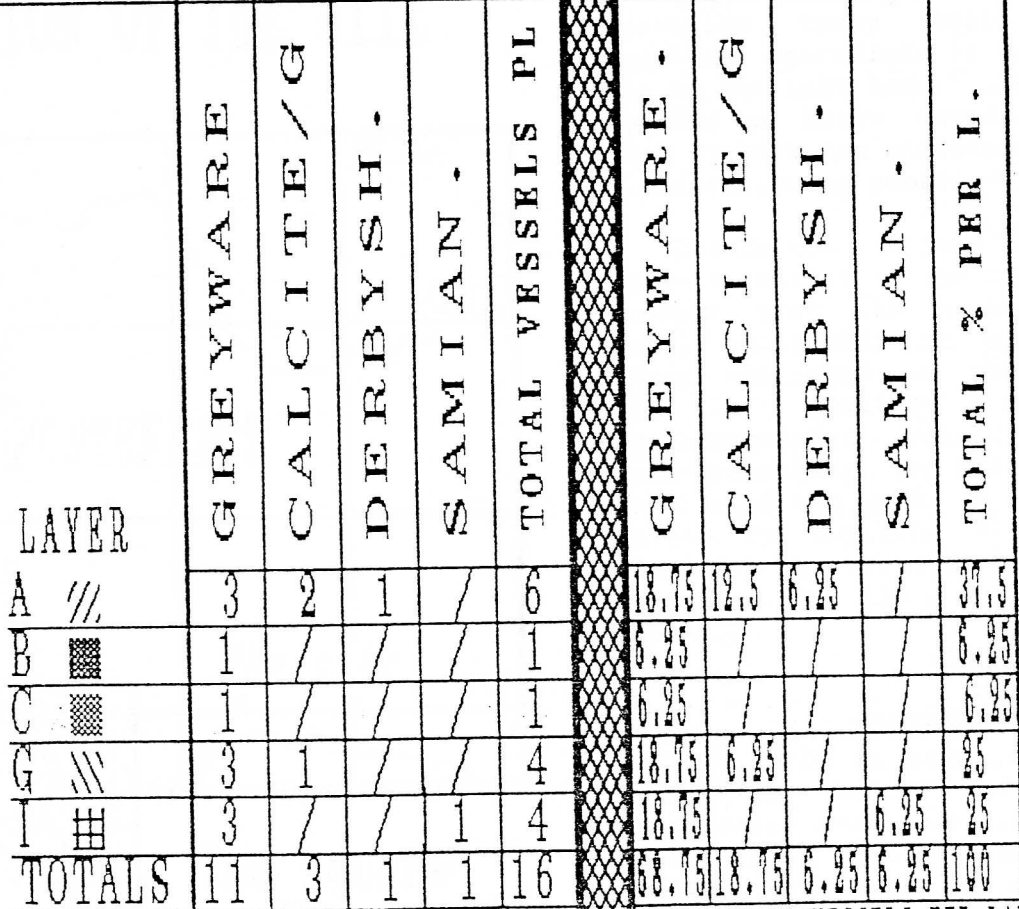 LAYER GREYWARE CALCITE/G DERBYSH. SAMIAN. TOTAL VESSELS PL GREYWARE. CALCITE/G DERBYSH. SAMIAN. TOTAL % PER L.
A 3 2 1 / 6 18.75 12.5 6.25 / 37.5
B 1 / / / 1 6.25 / / / 6.25
C 1 / / / 1 6.25 / / / 6.25
G 3 1 / / 4 18.75 6.25 / / 25
I 3 / / 1 4 18.75 / / 6.25 25
TOTALS 11 3 1 1 16 68.75 18.75 6.25 6.25 100